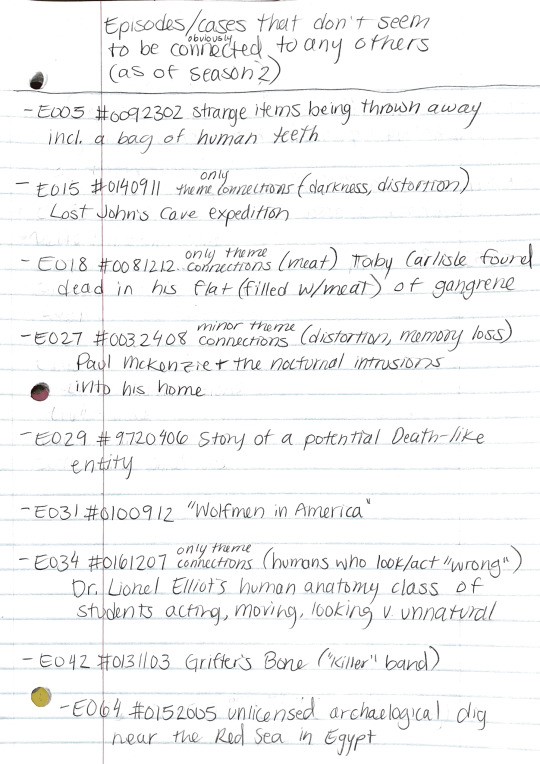 Episodes/cases that don't seem
to be obviously connected to any others
(as of season 2)
- E005 #0092302 strange items being thrown away
incl. a bag of human teeth
- E015 #0140911 only theme connections (darkness, distortion)
Lost John's Cave expedition
- E018 #0081212 only theme connections (meat) Toby Carlisle found
dead in his flat (filled w/meat) of gangrene
- E027 #0032408 minor theme connections (distortion, memory loss)
Paul McKenzie + the nocturnal intrusions
into his home
- E029 #9720406 Story of a potential Death-like
entity
- E031 #0100912 "Wolfmen in America"
- E034 #0161207 only theme connections (humans who look/act "wrong")
Dr. Lionel Elliot's human anatomy class of
students acting, moving, looking v. unnatural
- E042 #0131103 Grifter's Bone ("killer" band)
- E064 #0152005 unlicensed archaelogical dig
near the Red Sea in Egypt